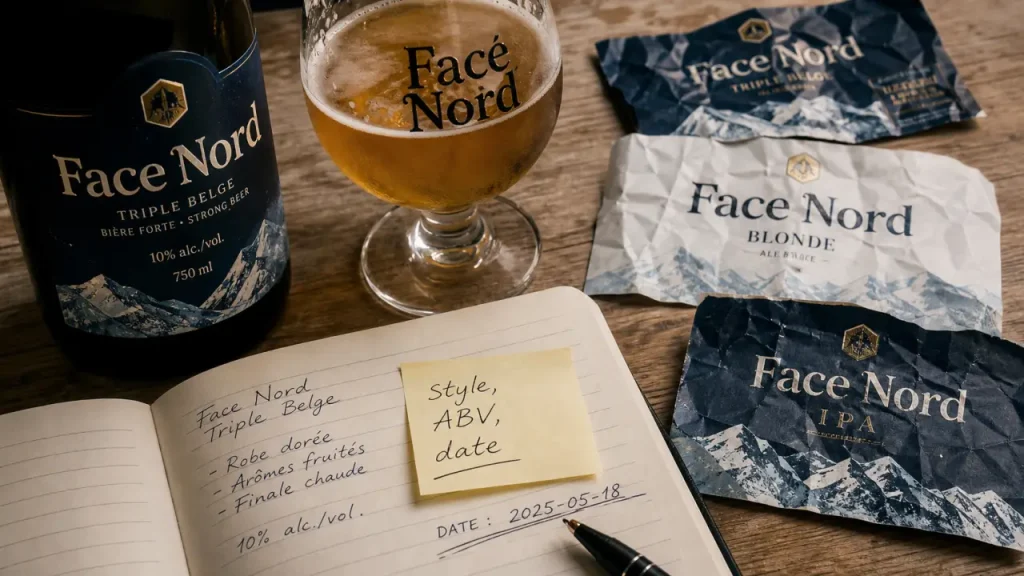 Face Nord
TRIPLE BELGE
BIÈRE FORTE • STRONG BEER
10% alc./vol.
750 ml
Facé
Nord
Face Nord
TRIPLE BELGE
Face Nord
BLONDE
Face Nord
IPA
Face Nord
Triple Belge
- Robe dorée
- Arômes fruités
- Finale chaude
10% alc./vol.
Style,
ABV,
date
DATE : 2025-05-18